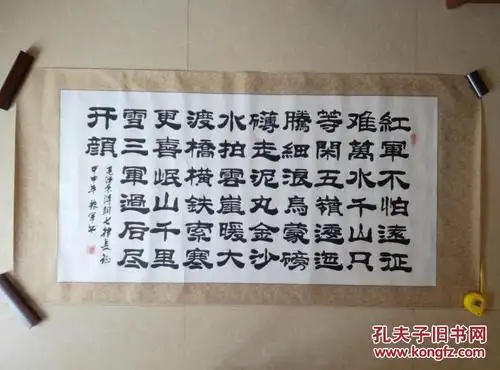 紅軍不怕遠征
难萬水千山只
等閑五嶺逶迤
騰細浪烏蒙磅
礴走泥丸金沙
水拍雲崖暖大
渡橋橫鉄索寒
更喜岷山千里
雪三軍過后尽
开顏
毛澤东詩詞七律長征
甲申年
孔夫子旧书网
www.kongfz.com